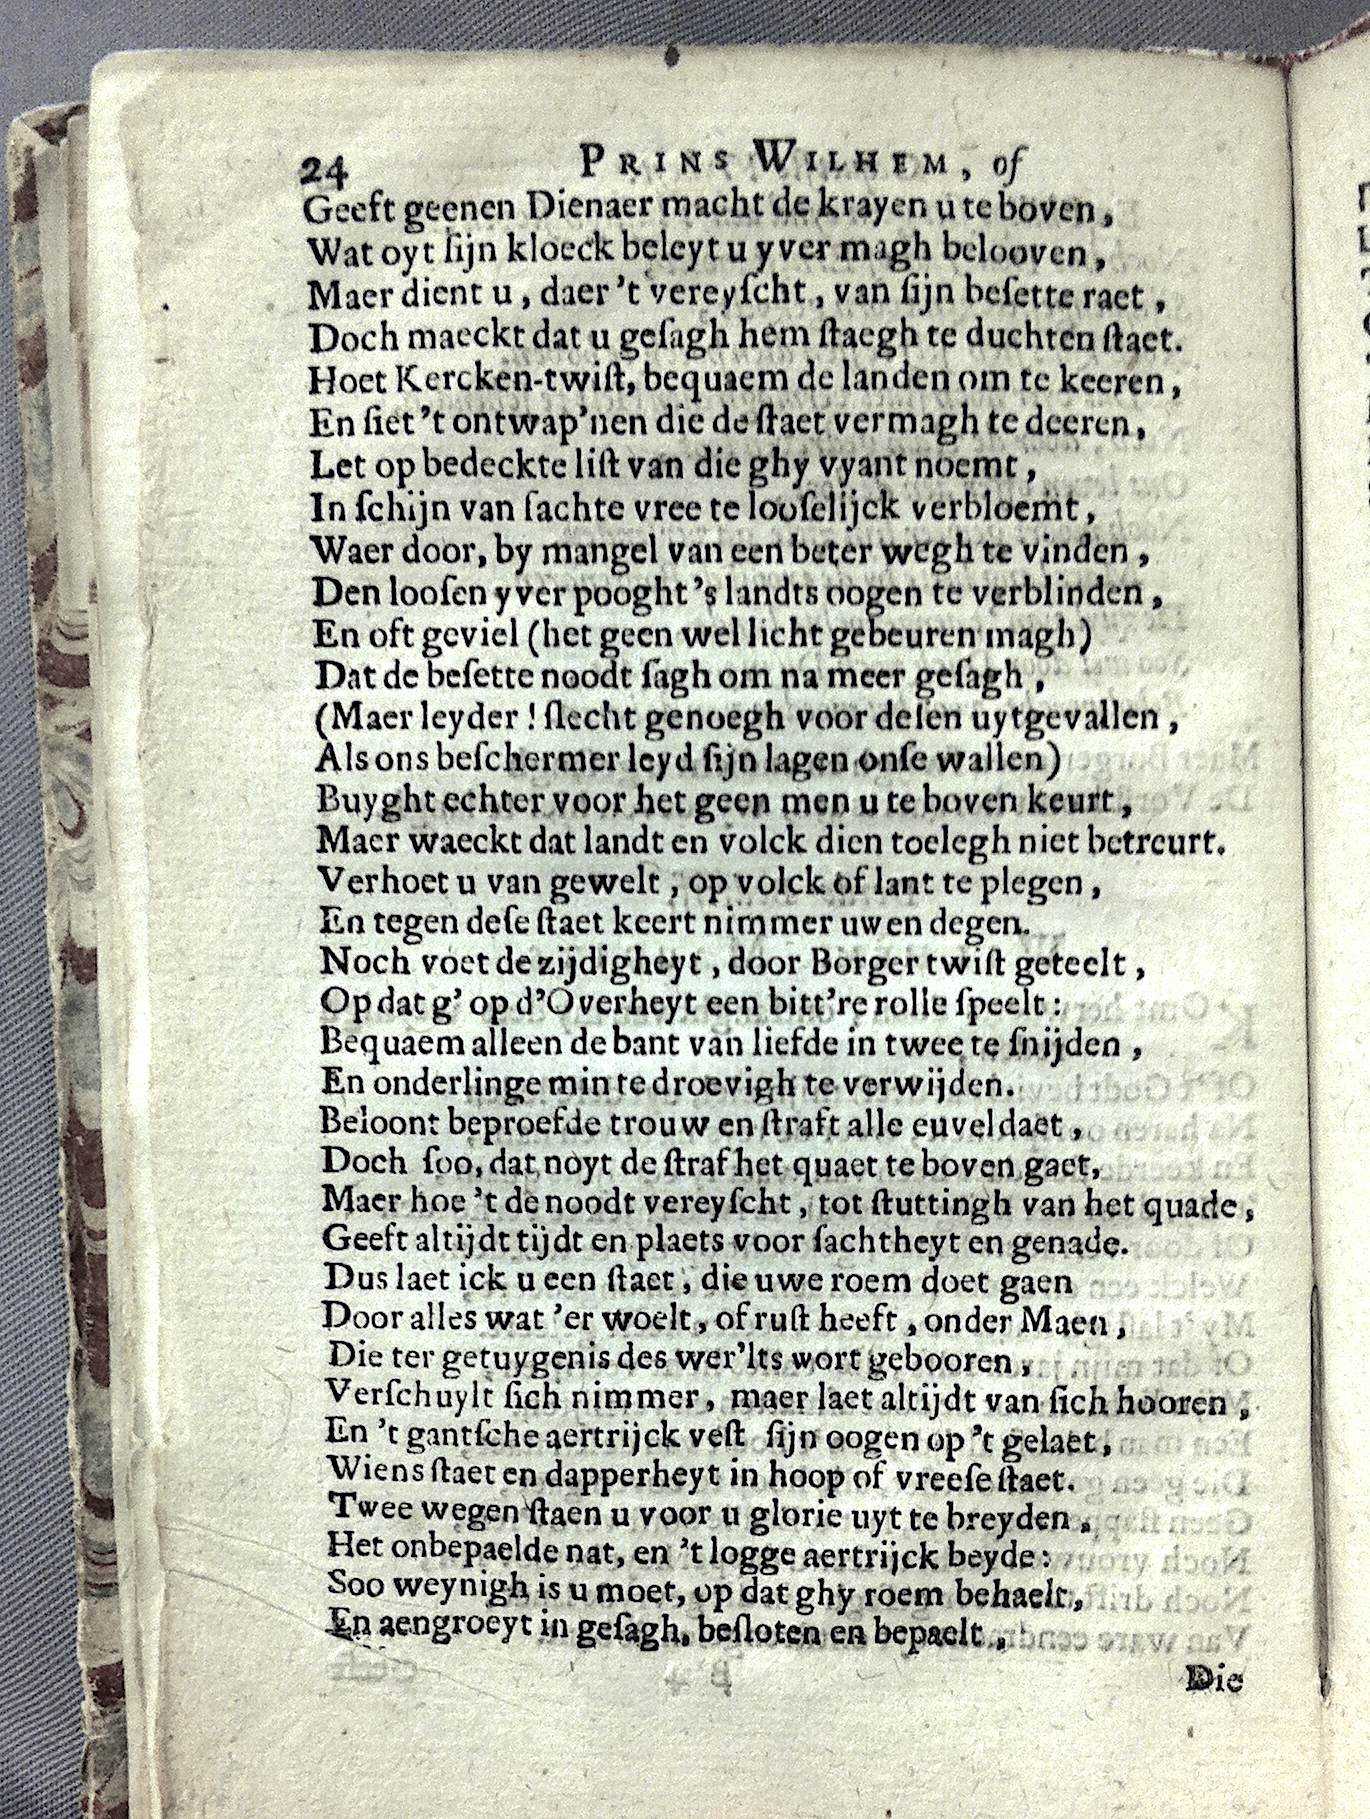 24 PRINS WILHEM, of
Geeft geenen Dienaer macht de krayen u te boven,
Wat oyt ſijn kloeck beleyt u yver magh belooven,
Maer dient u, daer 't vereyſcht, van ſijn beſette raet,
Doch maeckt dat u geſagh hem ſtaegh te duchten ſtaet.
Hoet Kercken-twiſt, bequaem de landen om te keeren,
En ſiet 't ontwap'nen die de ſtaet vermagh te deeren,
Let op bedeckte liſt van die ghy vyant noemt,
In ſchijn van ſachte vree te looſelijck verbloemt,
Waer door, by mangel van een beter wegh te vinden,
Den looſen yver pooght 's landts oogen te verblinden,
En oft geviel (het geen wel licht gebeuren magh)
Dat de beſette noodt ſagh om na meer geſagh,
(Maer leyder! ſlecht genoegh voor deſen uytgevallen,
Als ons beſchermer leyd ſijn lagen onſe wallen)
Buyght echter voor het geen men u te boven keurt,
Maer waeckt dat landt en volck dien toelegh niet betreurt.
Verhoet u van gewelt, op volck of lant te plegen,
En tegen deſe ſtaet keert nimmer uwen degen.
Noch voet de zijdigheyt, door Borger twiſt geteelt,
Op dat g' op d'Overheyt een bitt're rolle ſpeelt:
Bequaem alleen de bant van liefde in twee te ſnijden,
En onderlinge min te droevigh te verwijden.
Beloont beproefde trouw en ſtraft alle euveldaet,
Doch ſoo, dat noyt de ſtraf het quaet te boven gaet,
Maer hoe 't de noodt vereyſcht, tot ſtuttingh van het quade,
Geeft altijdt tijdt en plaets voor ſachtheyt en genade.
Dus laet ick u een ſtaet, die uwe roem doet gaen
Door alles wat 'er woelt, of ruſt heeft, onder Maen,
Die ter getuygenis des wer'lts wort gebooren,
Verſchuylt ſich nimmer, maer laet altijdt van ſich hooren,
En 't gantſche aertrijck veſt ſijn oogen op 't gelaet,
Wiens ſtaet en dapperheyt in hoop of vreeſe ſtaet.
Twee wegen ſtaen u voor u glorie uyt te breyden,
Het onbepaelde nat, en 't logge aertrijck beyde:
Soo weynigh is u moet, op dat ghy roem behaelt,
En aengroeyt in geſagh, beſloten en bepaelt,
Die